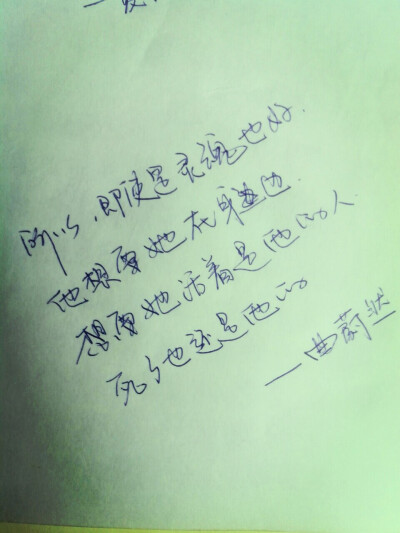 所以，即使是灵魂也好．
他想要她在身边．
想要她活着是他的人．
死了也还是他的
—曲蔚然